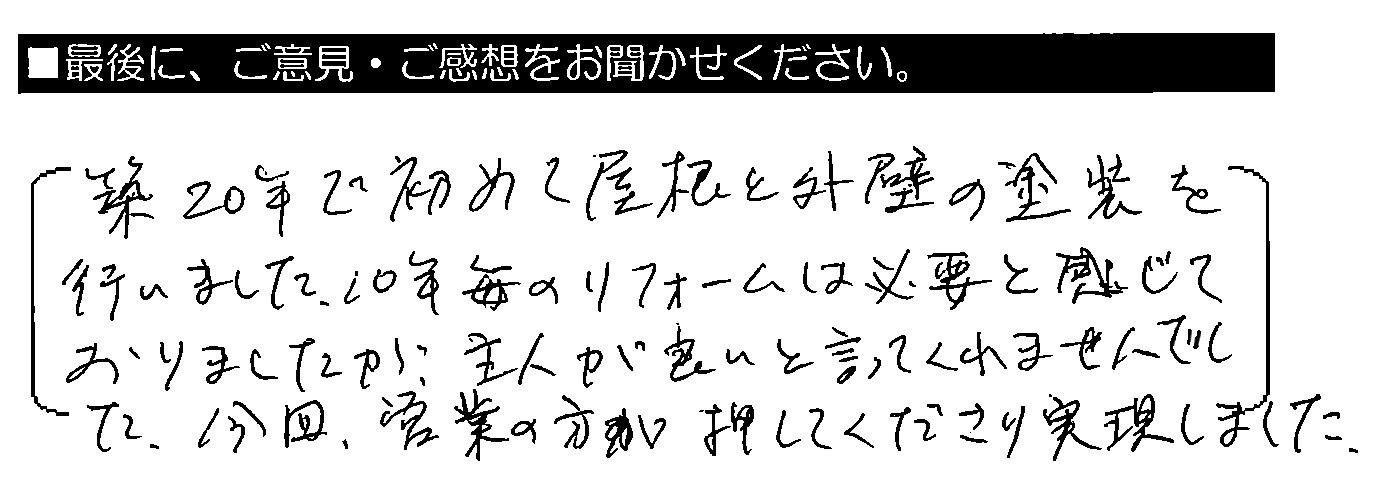 ■最後に、ご意見・ご感想をお聞かせください。
築20年で初めて屋根と外壁の塗装を
行いました、10年毎のリフォームは必要と感じて
おりましたが、主人が良いと言ってくれませんでし
た、今回、営業の方が押してくださり実現しました、